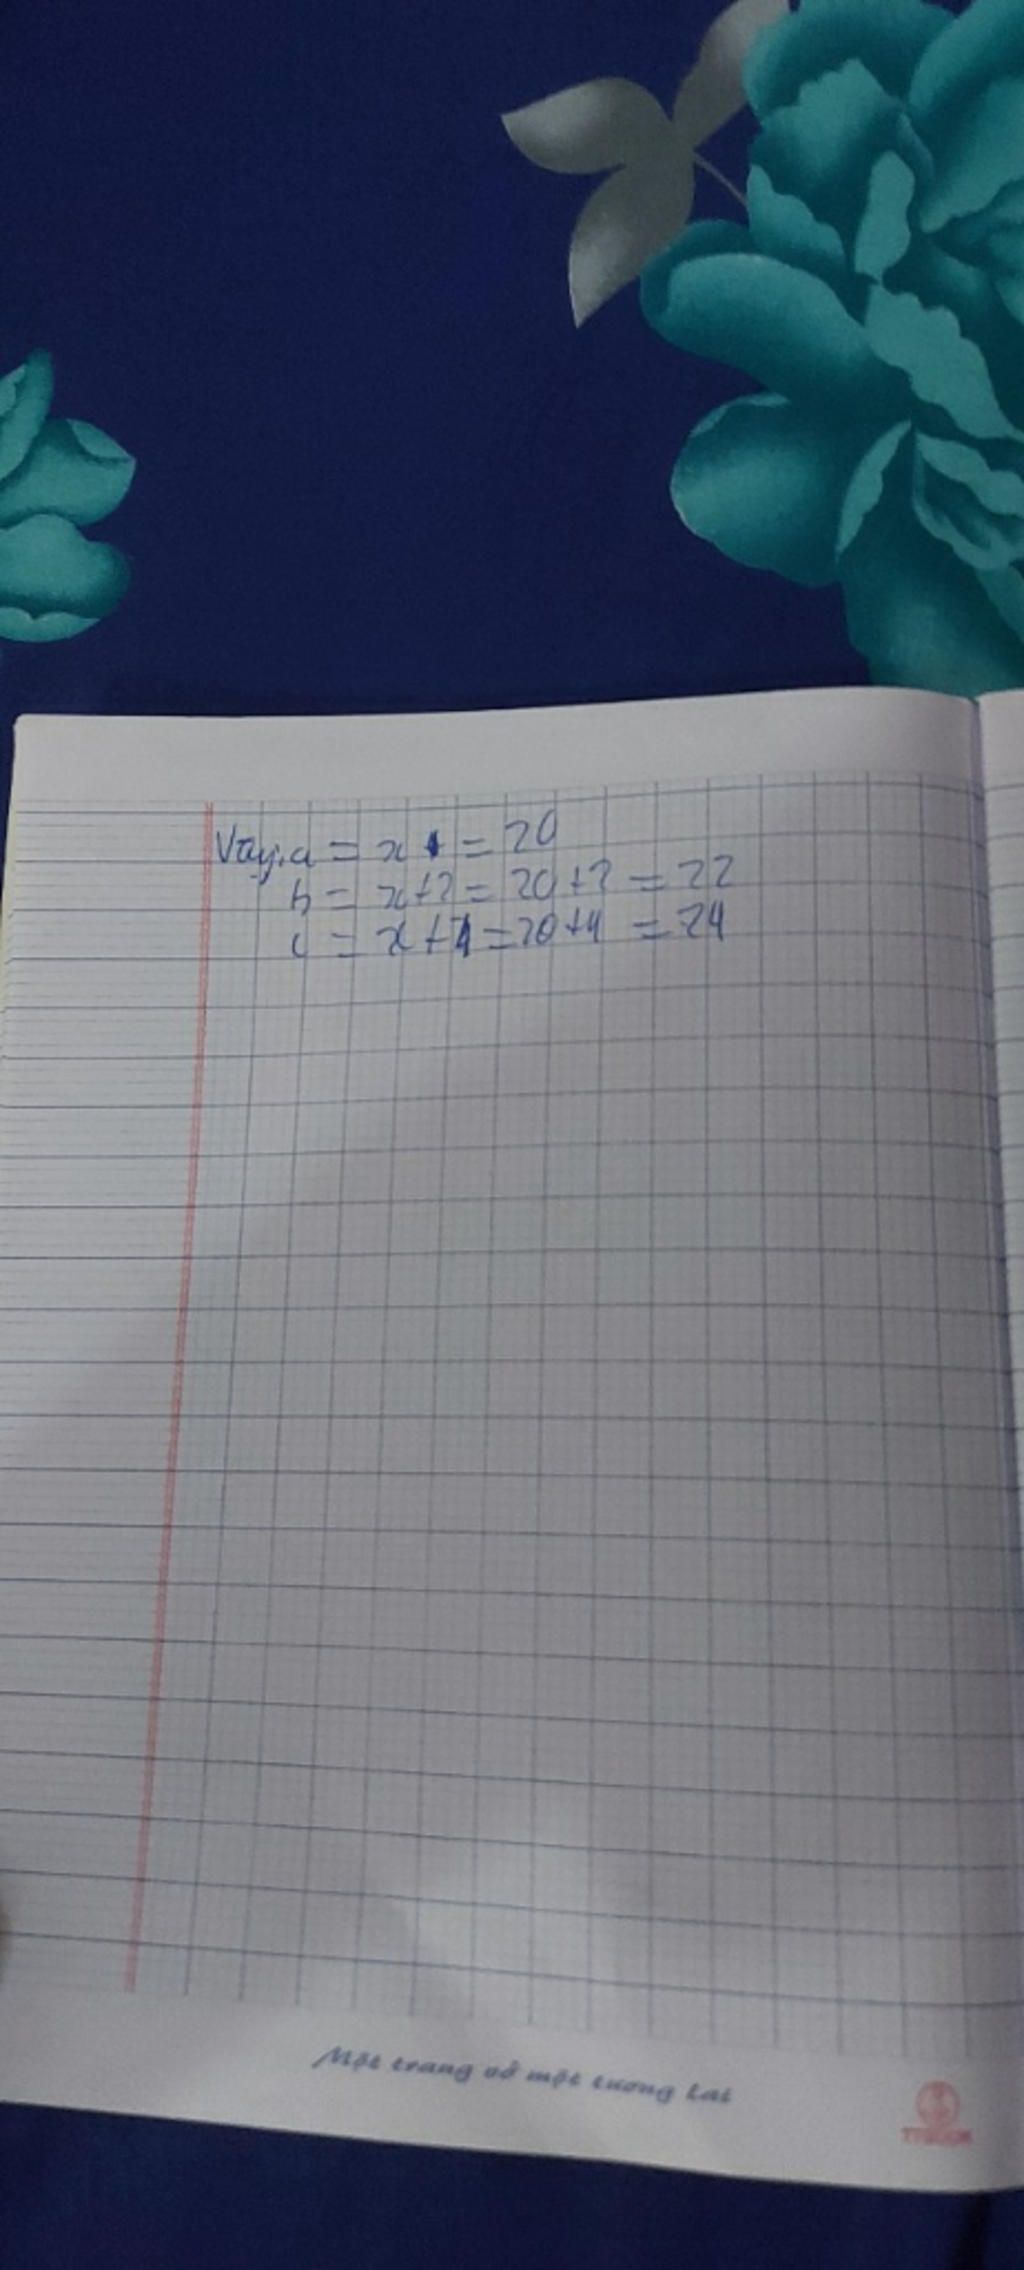 Vậy: a = x = 20
b = x+2 = 20+2 = 22
c = x+4 = 20+4 = 24
Một trang vở một tương lai